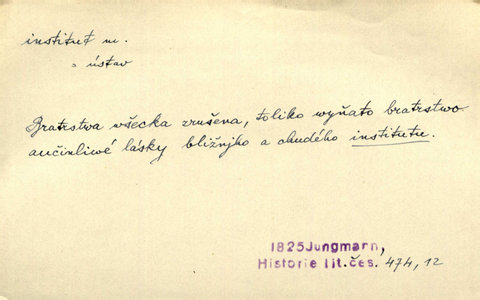 institut m.
ɔ ústav
Bratrstva wšecka zrušena, toliko wyňato bratrstwo
aučinliwé lásky bližnjho a chudého institutu.
1825 Jungmann,
Historie lit. čes. 474, 12